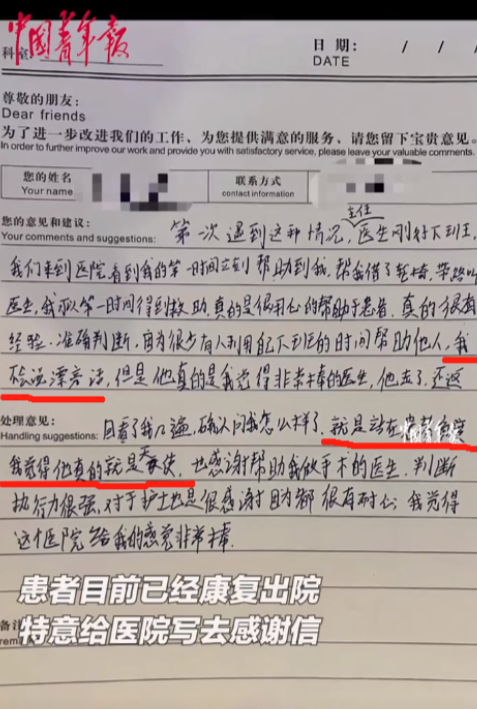 中国青年报
科室
日期: / / /
DATE
尊敬的朋友:
Dear friends
为了进一步改进我们的工作、为您提供满意的服务、请您留下宝贵意见。
In order to further improve our work and provide you with satisfactory service, please leave your valuable comments.
您的姓名
Your name
联系方式
contact information
您的意见和建议:
Your comments and suggestions:
第一次遇到这种情况,主任医生刚好下到班,
我们来到医院看到我的第一时间立刻帮助到我,帮我借了轮椅,带路叫
医生,我可以第一时间得到救助,真的是很用心的帮助于患者,真的很有
经验,准确判断,因为很少有人利用自己下班的时间帮助他人,我
不会说漂亮话,但是他真的是我觉得非常棒的医生,他走了,还返
处理意见:
Handling suggestions:
回看了我几遍,确认问我怎么样了,就是站在患者角度
我觉得他真的就是天使,也感谢帮助我做手术的医生,判断
执行力很强,对于护士也是很感谢因为都很有耐心,我觉得
这个医院给我的感觉非常棒.
患者目前已经康复出院
特意给医院写去感谢信
备注